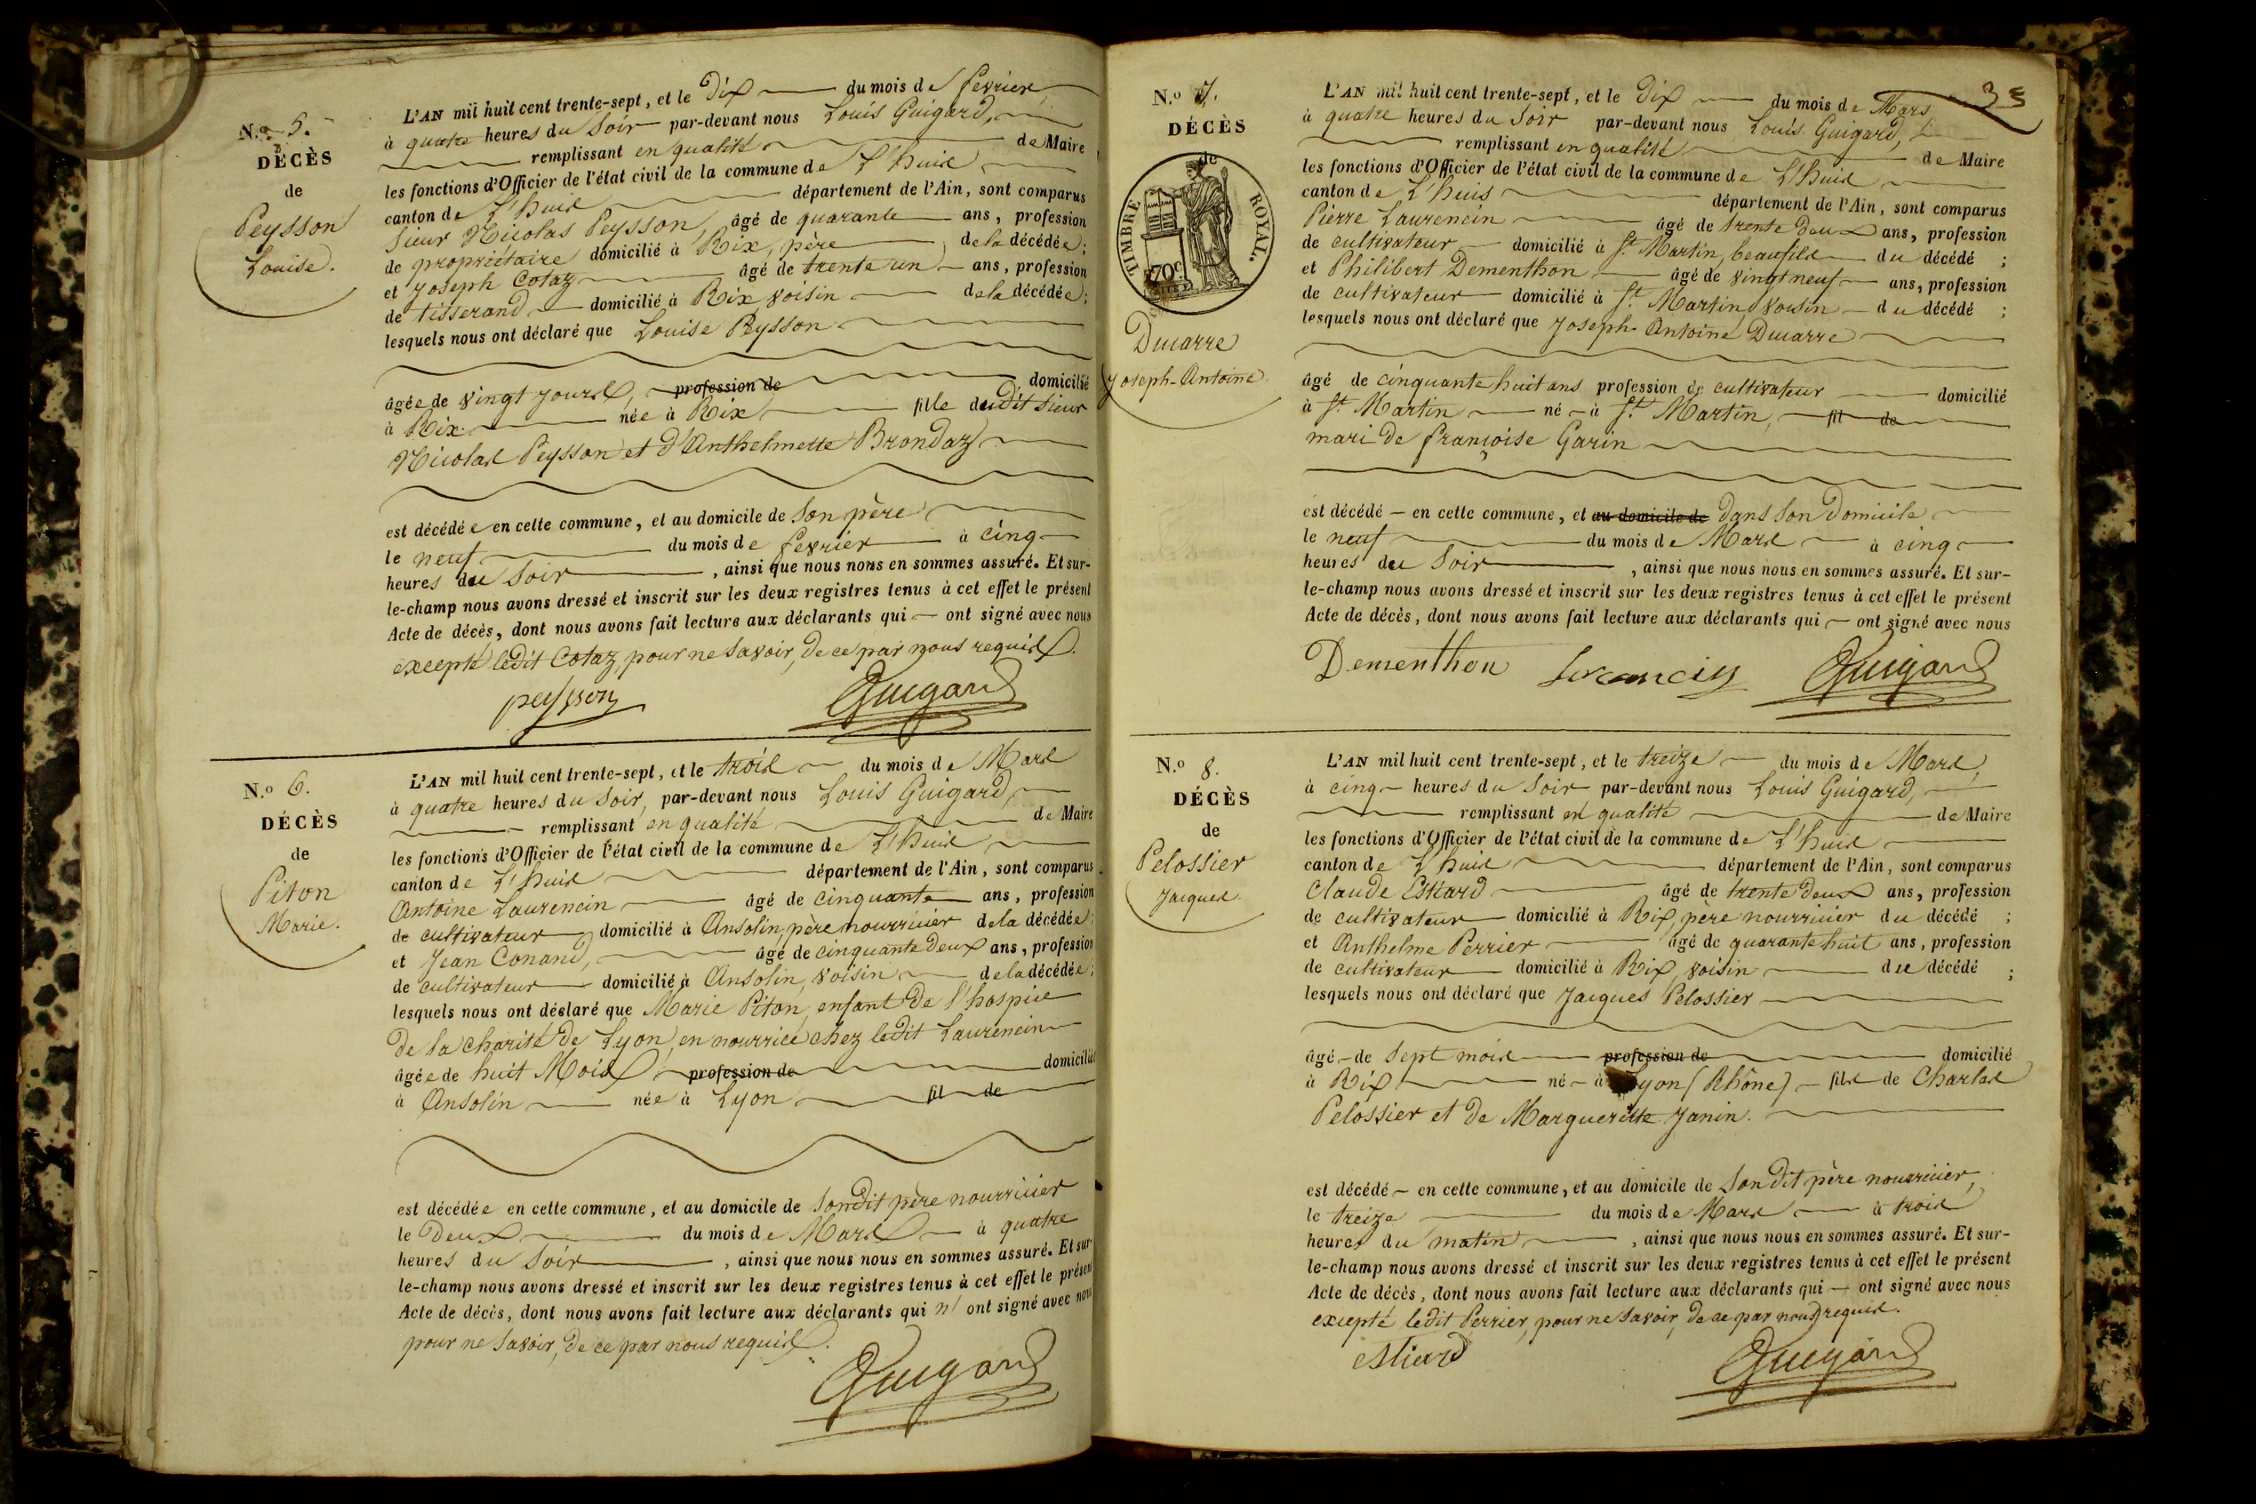 N.o 5.
DÉCÈS
de
Peysson
Louise.
L'AN mil huit cent trente-sept, et le Dix du mois de fevrier,
à quatre heures du Soir par-devant nous Louis Guigard,
remplissant en qualité de Maire
les fonctions d'Officier de l'état civil de la commune de L'huis
canton de L'huis département de l'Ain, sont comparus
Sieur Nicolas Peysson, âgé de quarante ans, profession
de propriétaire domicilié à Rix, père de la décédée;
et Joseph Cotaz âgé de trente un ans, profession
de tisserand domicilié à Rix, voisin de la décédée;
lesquels nous ont déclaré que Louise Peysson
âgée de vingt jours, profession de domicilié
à Rix née à Rix fille dudit Sieur
Nicolas Peysson et d'Anthelmette Brondaz
est décédée en cette commune, et au domicile de Son père
le neuf du mois de fevrier à cinq
heures du Soir, ainsi que nous nous en sommes assuré. Et sur-
le-champ nous avons dressé et inscrit sur les deux registres tenus à cet effet le présent
Acte de décès, dont nous avons fait lecture aux déclarants qui ont signé avec nous
excepté ledit Cotaz, pour ne Savoir, de ce par nous requis.
peysson Guigard
N.o 6.
DÉCÈS
de
Piton
Marie.
L'AN mil huit cent trente-sept, et le trois du mois de Mars
à quatre heures du Soir, par-devant nous Louis Guigard,
remplissant en qualité de Maire
les fonctions d'Officier de l'état civil de la commune de L'huis
canton de L'huis département de l'Ain, sont comparus
Antoine Laurencin âgé de cinquante ans, profession
de cultivateur domicilié à Ansolin, père nourricier de la décédée;
et Jean Conand, âgé de cinquante Deux ans, profession
de cultivateur domicilié à Ansolin, voisin de la décédée;
lesquels nous ont déclaré que Marie Piton, enfant de l'hospice
de la charité de Lyon, en nourrice chez ledit Laurencin
âgée de huit Mois, profession de domiciliée
à Ansolin née à Lyon fil de
est décédée en cette commune, et au domicile de Son dit père nourricier
le Deux du mois de Mars à quatre
heures du Soir, ainsi que nous nous en sommes assuré. Et sur
le-champ nous avons dressé et inscrit sur les deux registres tenus à cet effet le présent
Acte de décès, dont nous avons fait lecture aux déclarants qui n'ont signé avec nous
pour ne Savoir, de ce par nous requis.
Guigard
35
N.o 7.
DÉCÈS
de
TIMBRE ROYAL.
70c
Ducarre
Joseph-Antoine.
L'AN mil huit cent trente-sept, et le Dix du mois de Mars
à quatre heures du Soir par-devant nous Louis Guigard,
remplissant en qualité de Maire
les fonctions d'Officier de l'état civil de la commune de L'huis
canton de L'huis département de l'Ain, sont comparus
Pierre Laurencin âgé de trente Deux ans, profession
de cultivateur domicilié à St. Martin, beaufils du décédé;
et Philibert Dementhon âgé de vingt neuf ans, profession
de cultivateur domicilié à St. Martin, voisin du décédé;
lesquels nous ont déclaré que Joseph-Antoine Ducarre
âgé de cinquante huit ans profession de cultivateur domicilié
à St. Martin né à St. Martin, fil de
mari de françoise Garin
est décédé en cette commune, et au domicile de Dans Son Domicile
le neuf du mois de Mars à cinq
heures du Soir, ainsi que nous nous en sommes assuré. Et sur-
le-champ nous avons dressé et inscrit sur les deux registres tenus à cet effet le présent
Acte de décès, dont nous avons fait lecture aux déclarants qui ont signé avec nous
Dementhon Guigard
N.o 8.
DÉCÈS
de
Pelossier
Jacques.
L'AN mil huit cent trente-sept, et le treize du mois de Mars,
à cinq heures du Soir par-devant nous Louis Guigard,
remplissant en qualité de Maire
les fonctions d'Officier de l'état civil de la commune de L'huis
canton de L'huis département de l'Ain, sont comparus
Claude Estiard âgé de trente Deux ans, profession
de cultivateur domicilié à Rix, père nourricier du décédé;
et Anthelme Perrier âgé de quarante huit ans, profession
de cultivateur domicilié à Rix, voisin du décédé;
lesquels nous ont déclaré que Jacques Pelossier
âgé de Sept mois profession de domicilié
à Rix né à Lyon (Rhône) fils de Charles
Pelossier et de Margueritte Janin.
est décédé en cette commune, et au domicile de Son dit père nourricier,
le treize du mois de Mars à trois
heures du matin, ainsi que nous nous en sommes assuré. Et sur-
le-champ nous avons dressé et inscrit sur les deux registres tenus à cet effet le présent
Acte de décès, dont nous avons fait lecture aux déclarants qui ont signé avec nous
excepté ledit Perrier, pour ne Savoir, de ce par nous requis.
estiard Guigard